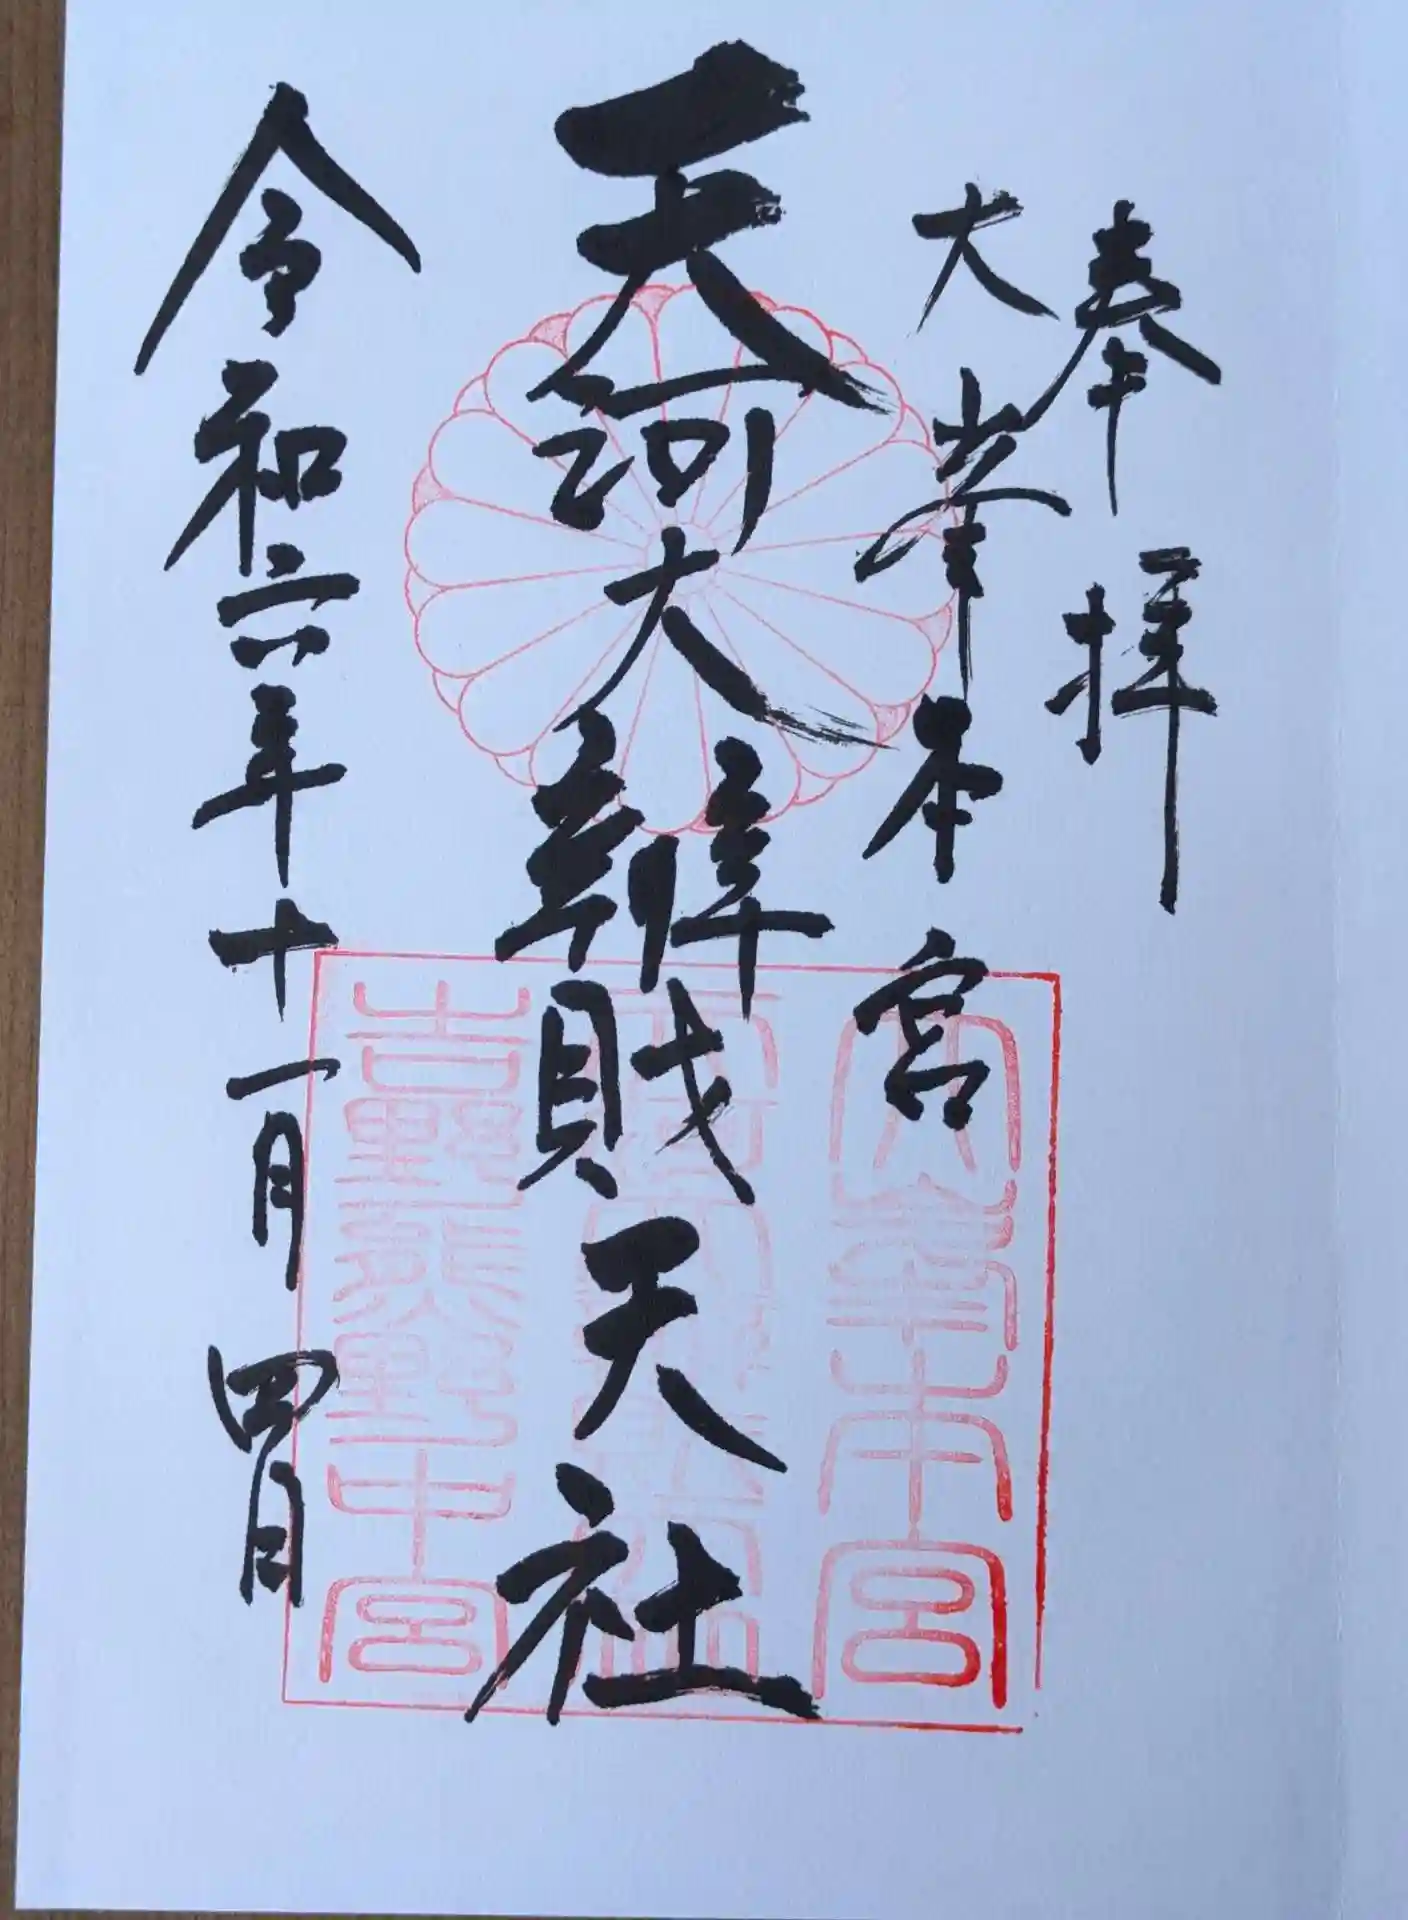 奉拝
大峯本宮
天河大辨財天社
令和六年十一月四日
大峯本宮
吉野熊野中宮